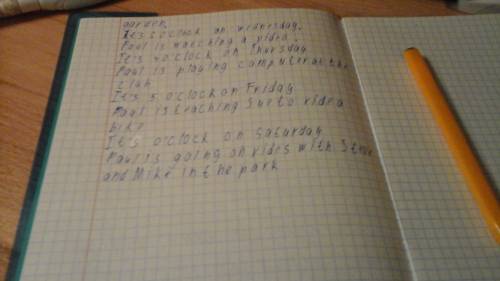 garden.
It's 5 o'clock on wednesday.
Paul is watching a vidra.
It's 4 o'clock on Thursday
Paul is playing computer at the
club
It's 5 o'clock on Friday
Paul is teaching Sue to ride a
bike
It's o'clock on Saturday
Paul is going on rides with Steve
and Mike in the park